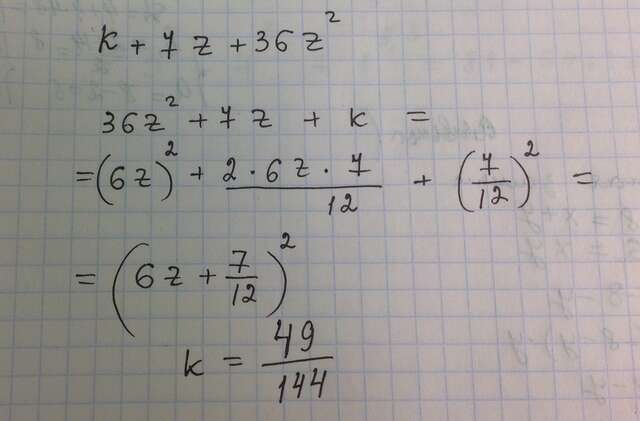 k + 7z + 36z²
36z² + 7z + k =
= (6z)² + (2 · 6z · 7)/12 + (7/12)² =
= (6z + 7/12)²
k = 49/144